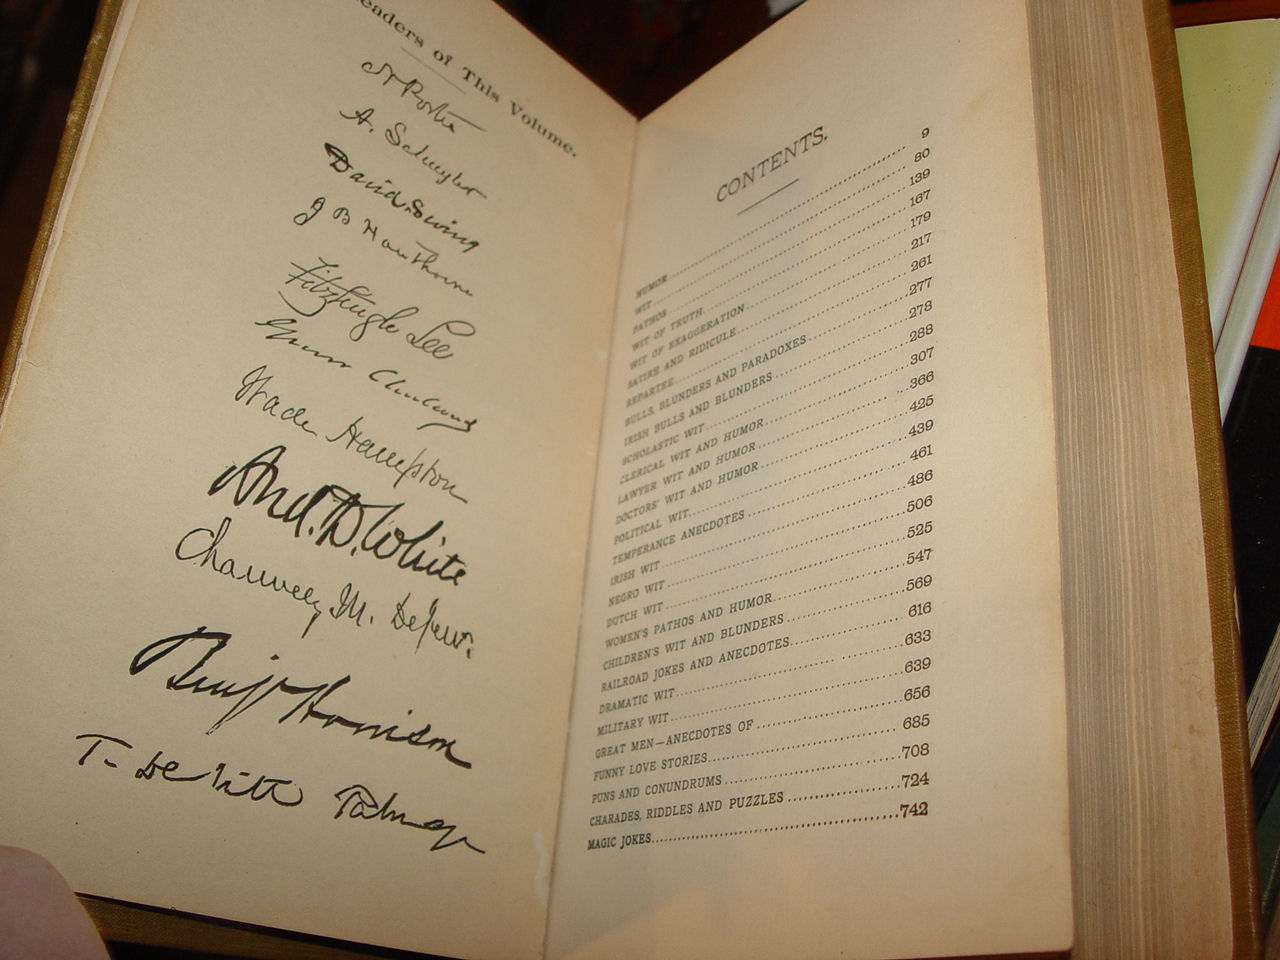 eaders of This Volume.
Porter
A. Schuyler
David Swing
J B Hawthorne
Fitzhugh Lee
Wade Hampton
And. D. White
Chauncey M. Depew.
Benj Harrison
T. De Witt Talmage
CONTENTS.
HUMOR 9
WIT 80
PATHOS 139
WIT OF TRUTH 167
WIT OF EXAGGERATION 179
SATIRE AND RIDICULE 217
REPARTEE 261
BULLS, BLUNDERS AND PARADOXES 277
IRISH BULLS AND BLUNDERS 278
SCHOLASTIC WIT 288
CLERICAL WIT AND HUMOR 307
LAWYER WIT AND HUMOR 366
DOCTORS' WIT AND HUMOR 425
POLITICAL WIT 439
TEMPERANCE ANECDOTES 461
IRISH WIT 486
NEGRO WIT 506
DUTCH WIT 525
WOMEN'S PATHOS AND HUMOR 547
CHILDREN'S WIT AND BLUNDERS 569
RAILROAD JOKES AND ANECDOTES 616
DRAMATIC WIT 633
MILITARY WIT 639
GREAT MEN—ANECDOTES OF 656
FUNNY LOVE STORIES 685
PUNS AND CONUNDRUMS 708
CHARADES, RIDDLES AND PUZZLES 724
MAGIC JOKES 742